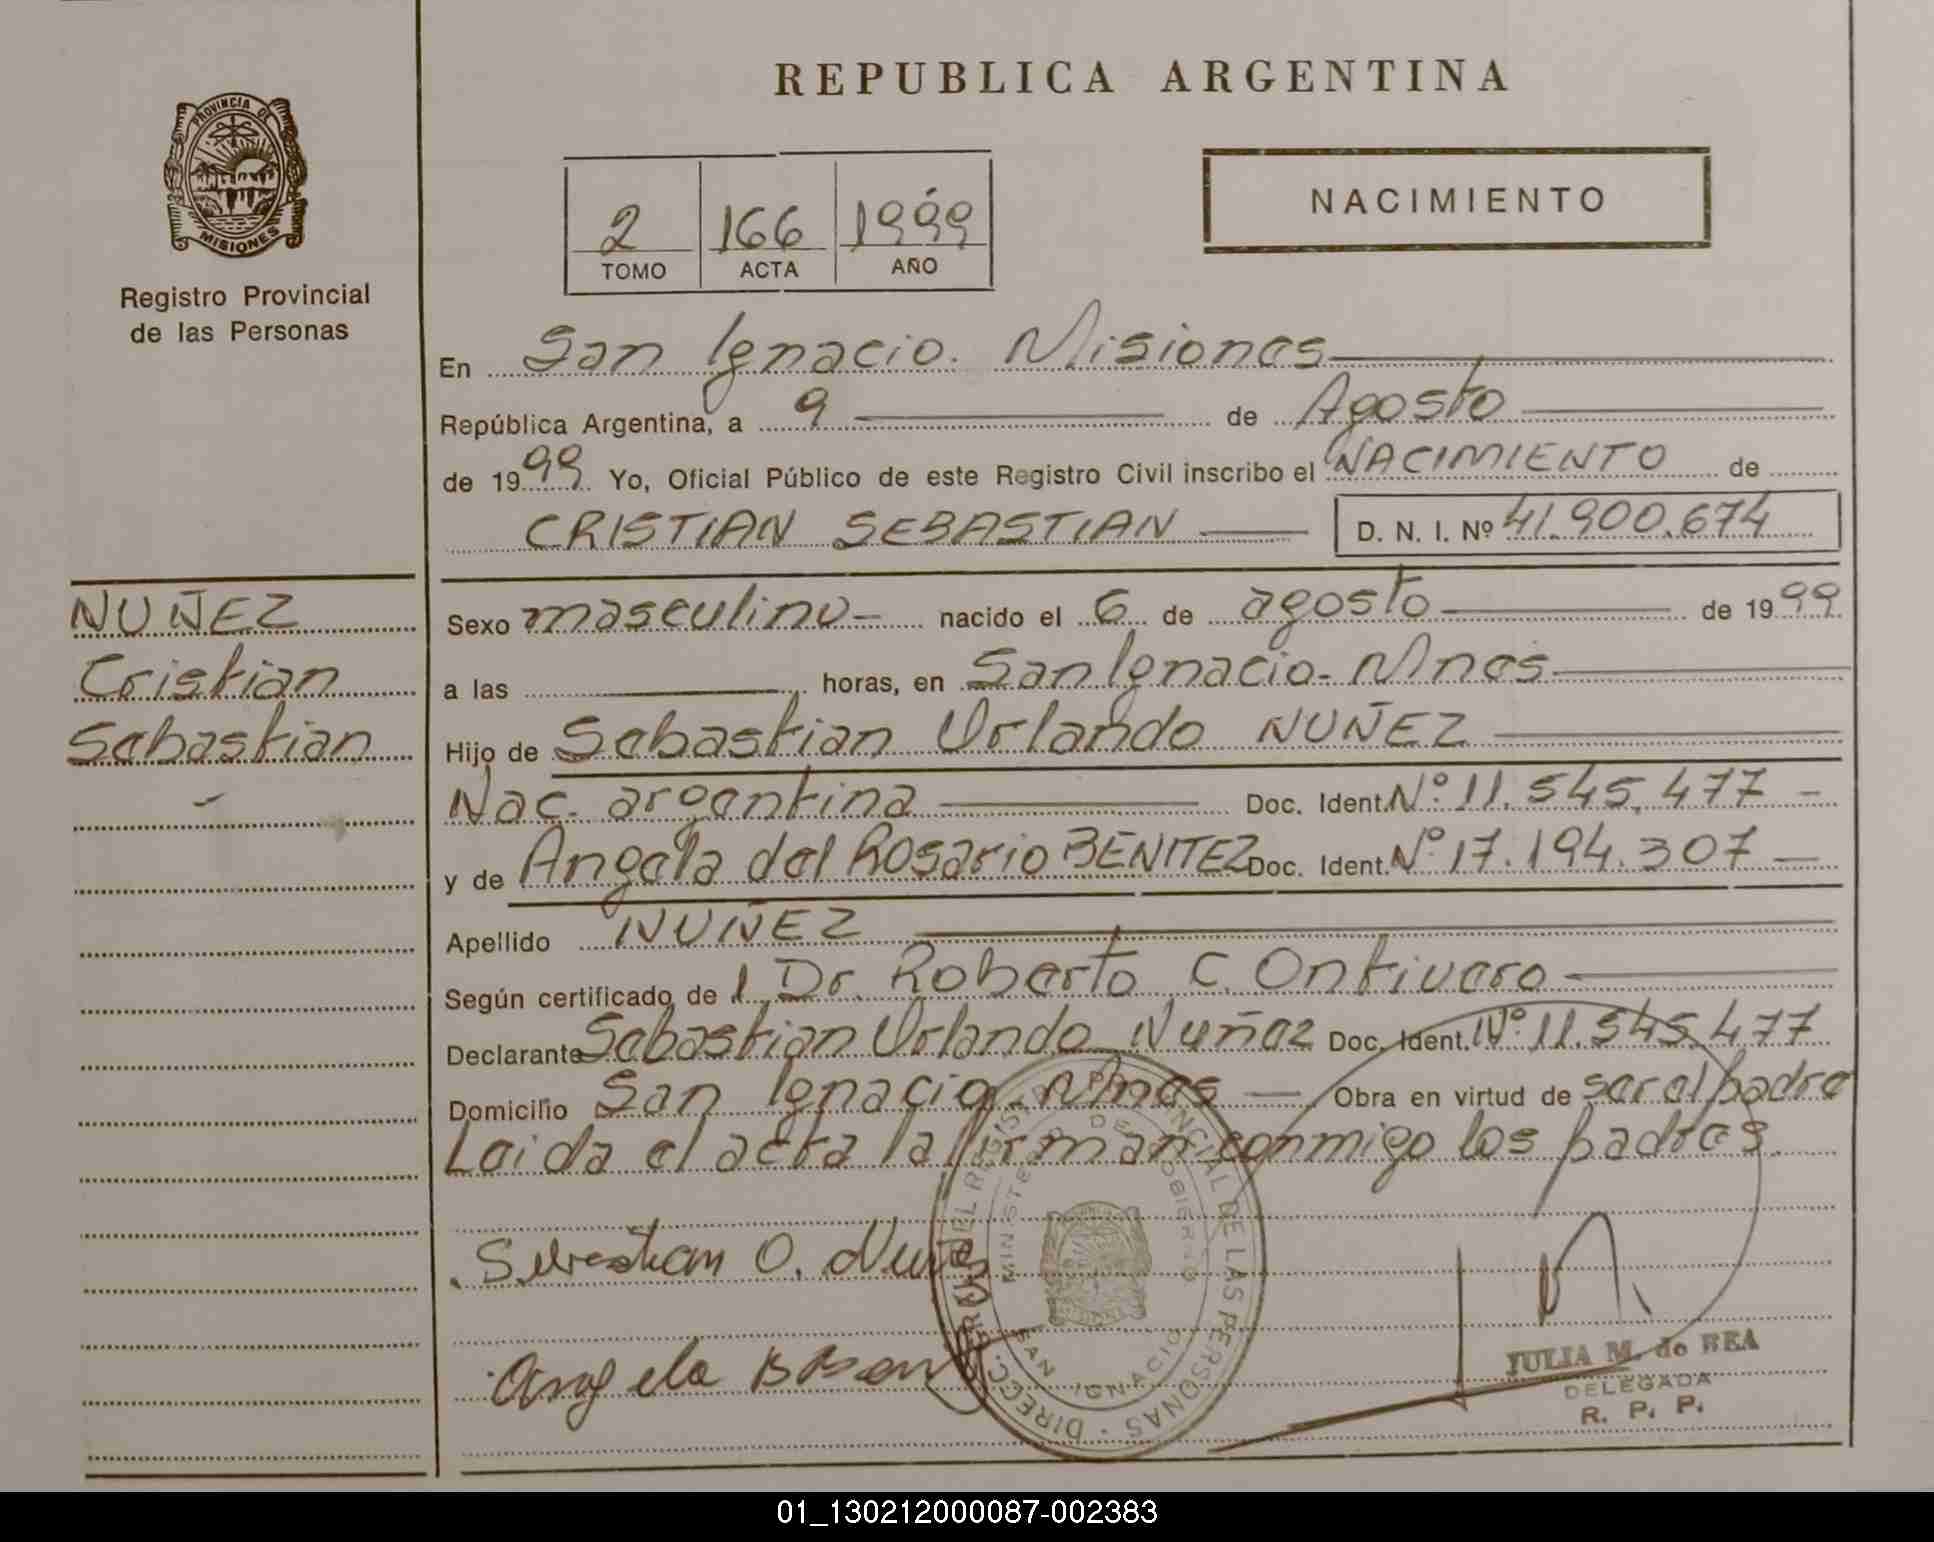 REPUBLICA ARGENTINA
PROVINCIA DE
MISIONES
Registro Provincial
de las Personas
2 166 1999
TOMO ACTA AÑO
NACIMIENTO
En San Ignacio. Misiones
República Argentina, a 9 de Agosto
de 1999 Yo, Oficial Público de este Registro Civil inscribo el NACIMIENTO de
CRISTIAN SEBASTIAN D. N. I. Nº 41.900.674
NUÑEZ
Cristian
Sebastian
Sexo masculino - nacido el 6 de agosto de 1999
a las horas, en San Ignacio - Mnes
Hijo de Sebastian Orlando NUÑEZ
Nac. argentina Doc. Ident. Nº 11.545.477 -
y de Angela del Rosario BENITEZ Doc. Ident. Nº 17.194.307 -
Apellido NUÑEZ
Según certificado de l Dr. Roberto C. Ontivero
Declarante Sebastian Orlando Nuñez Doc. Ident. Nº 11.545.477
Domicilio San Ignacio - Mnes - Obra en virtud de ser el padre
Leida el acta la firman conmigo los padres.
Sebastian O. Nuñez
Angela B
DIRECC. GRAL. DEL REGISTRO PROVINCIAL DE LAS PERSONAS
MINISTERIO DE GOBIERNO
SAN IGNACIO
JULIA M. de BEA
DELEGADA
R. P. P.
01_130212000087-002383